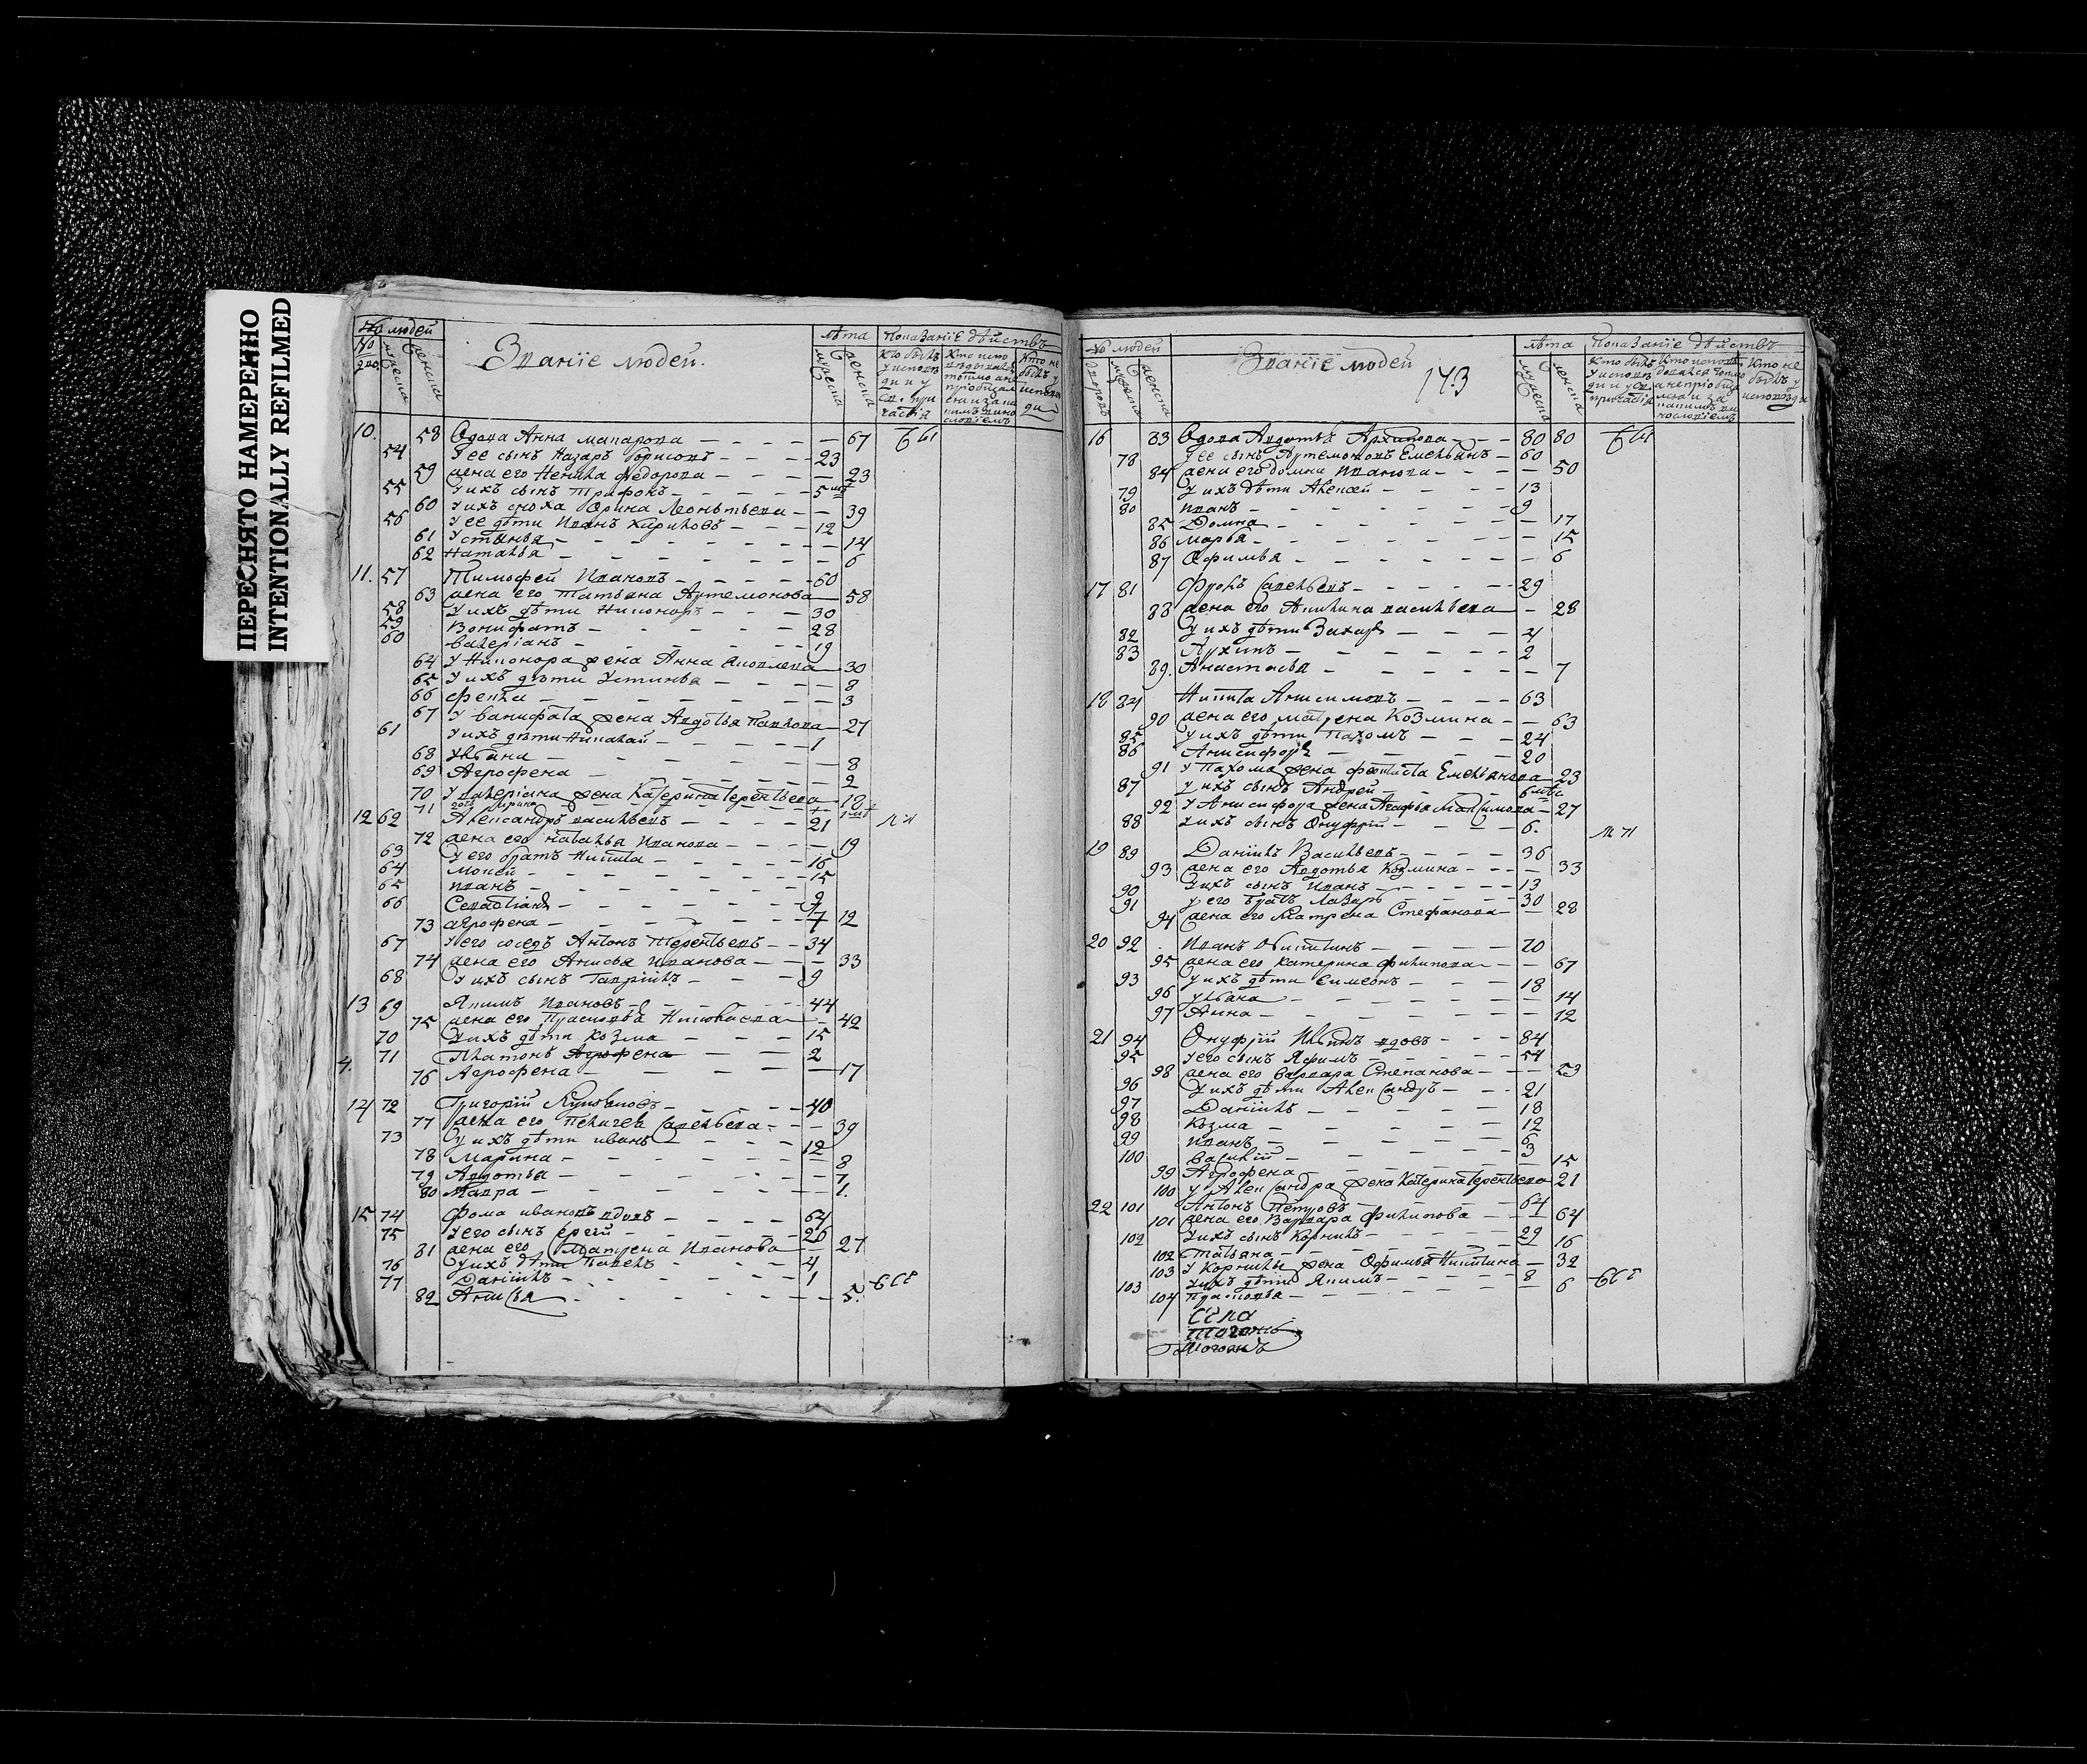 ПЕРЕСНЯТО НАМЕРЕННО
INTENTIONALLY REFILMED
No людей
Званїе людей.
лѣта
Показанїе дѣйствъ
10. 58 Вдова Анна макарова — 67
54 У ее сынъ Назаръ Борисовъ — 23
59 жена его Ненила федорова — 23
55 У ихъ сынъ Трифонъ — 5
60 У ихъ сноха Орина Леонтьева — 39
56 У ее дѣти Иванъ Кириловъ — 12
61 Устинья — 14
62 Наталья — 6
11. 57 Тимофей Ивановъ — 60
63 жена его Татьяна Артемонова — 58
58 У ихъ дѣти Никоноръ — 30
59 Вонифатъ — 28
60 валерїанъ — 19
64 У Никонора жена Анна Яковлева — 30
65 У ихъ дѣти Устинья — 8
66 фекла — 3
67 У Ванифата жена Авдотья Павлова — 27
61 У ихъ дѣти Николай — 1
68 Ульяна — 8
69 Агрофена — 2
70 У валерїана жена Катерина Терентьева — 18
71 дочь Ирина
12 62 Александръ васильевъ — 21
72 жена его наталья Иванова — 19
63 У его братъ Никита — 16
64 Мокей — 15
65 иванъ — 9
66 Севастїанъ — 7
73 агрофена — 12
67 У его соседъ Антонъ Терентьевъ — 34
74 жена его Анисья Иванова — 33
68 У ихъ сынъ Гаврїилъ — 9
13 69 Якимъ Ивановъ — 44
75 жена его Прасковья — 42
70 У ихъ дѣти Козма — 15
71 Платонъ Агрофена — 2
76 Агрофена — 17
14 72 Григорїй — 40
77 жена его Пелагея Савельева — 39
73 У ихъ дѣти иванъ — 12
78 Марина — 8
79 Авдотья — 7
80 Мавра — 1.
15 74 Фома ивановъ вдовъ — 64
75 У его сынъ Сергїй — 26
81 жена его Матрена Иванова — 27
76 У ихъ дѣти Павелъ — 4
77 Данїилъ — 1
82 Анисья — 5.
No людей
Званїе людей
173
лѣта
Показанїе дѣйствъ
16 83 Вдова Авдотья Архипова — 80 80
78 У ее сынъ Артемонъ Емельянъ — 60
84 жена его домна Иванова — 50
79 У ихъ дѣти Алексей — 13
80 иванъ — 9
85 Домна — 17
86 марья — 15
87 Офимья — 6
17 81 Фролъ Савельевъ — 29
88 жена его Акилина васильева — 28
82 У ихъ дѣти Захаръ — 4
83 Архипъ — 2
89. Анастасья — 7
18 84 Никита Анисимовъ — 63
90 жена его матрена Козмина — 63
85 У ихъ дѣти Пахомъ — 24
86 Анисифоръ — 20
91 У Пахома жена фетиста Емельянова — 23
87 У ихъ сынъ Андрей — 6
92 У Анисифора жена Агафья Максимова — 27
88 У ихъ сынъ Онуфрїй — 6.
19 89 Данїилъ Васильевъ — 36
93 жена его Авдотья Козмина — 33
90 У ихъ сынъ Иванъ — 13
91 У его братъ Лазарь — 30
94 жена его Матрена Стефанова — 28
20 92 Иванъ Никитинъ — 70
95 жена его катерина Филипова — 67
93 У ихъ дѣти Симеонъ — 18
96 Ульяна — 14
97 Анна — 12
21 94 Онуфрїй вдовъ — 84
95 У его сынъ Яфимъ — 54
98 жена его Варвара Степанова — 53
96 У ихъ дѣти Александръ — 21
97 Данїилъ — 18
98 Козма — 12
99 иванъ — 6
100 Василїй — 3
99 Агрофена — 15
100 У Александра жена Катерина Терентьева — 21
22 101 Антонъ Петровъ — 64
101 жена его Варвара Филипова — 64
102 У ихъ сынъ Корнилъ — 29
102 Татьяна — 16
103 У Корнилы жена Офимья Никитина — 32
103 У ихъ дѣти Якимъ — 8
104 Прасковья — 6
Села